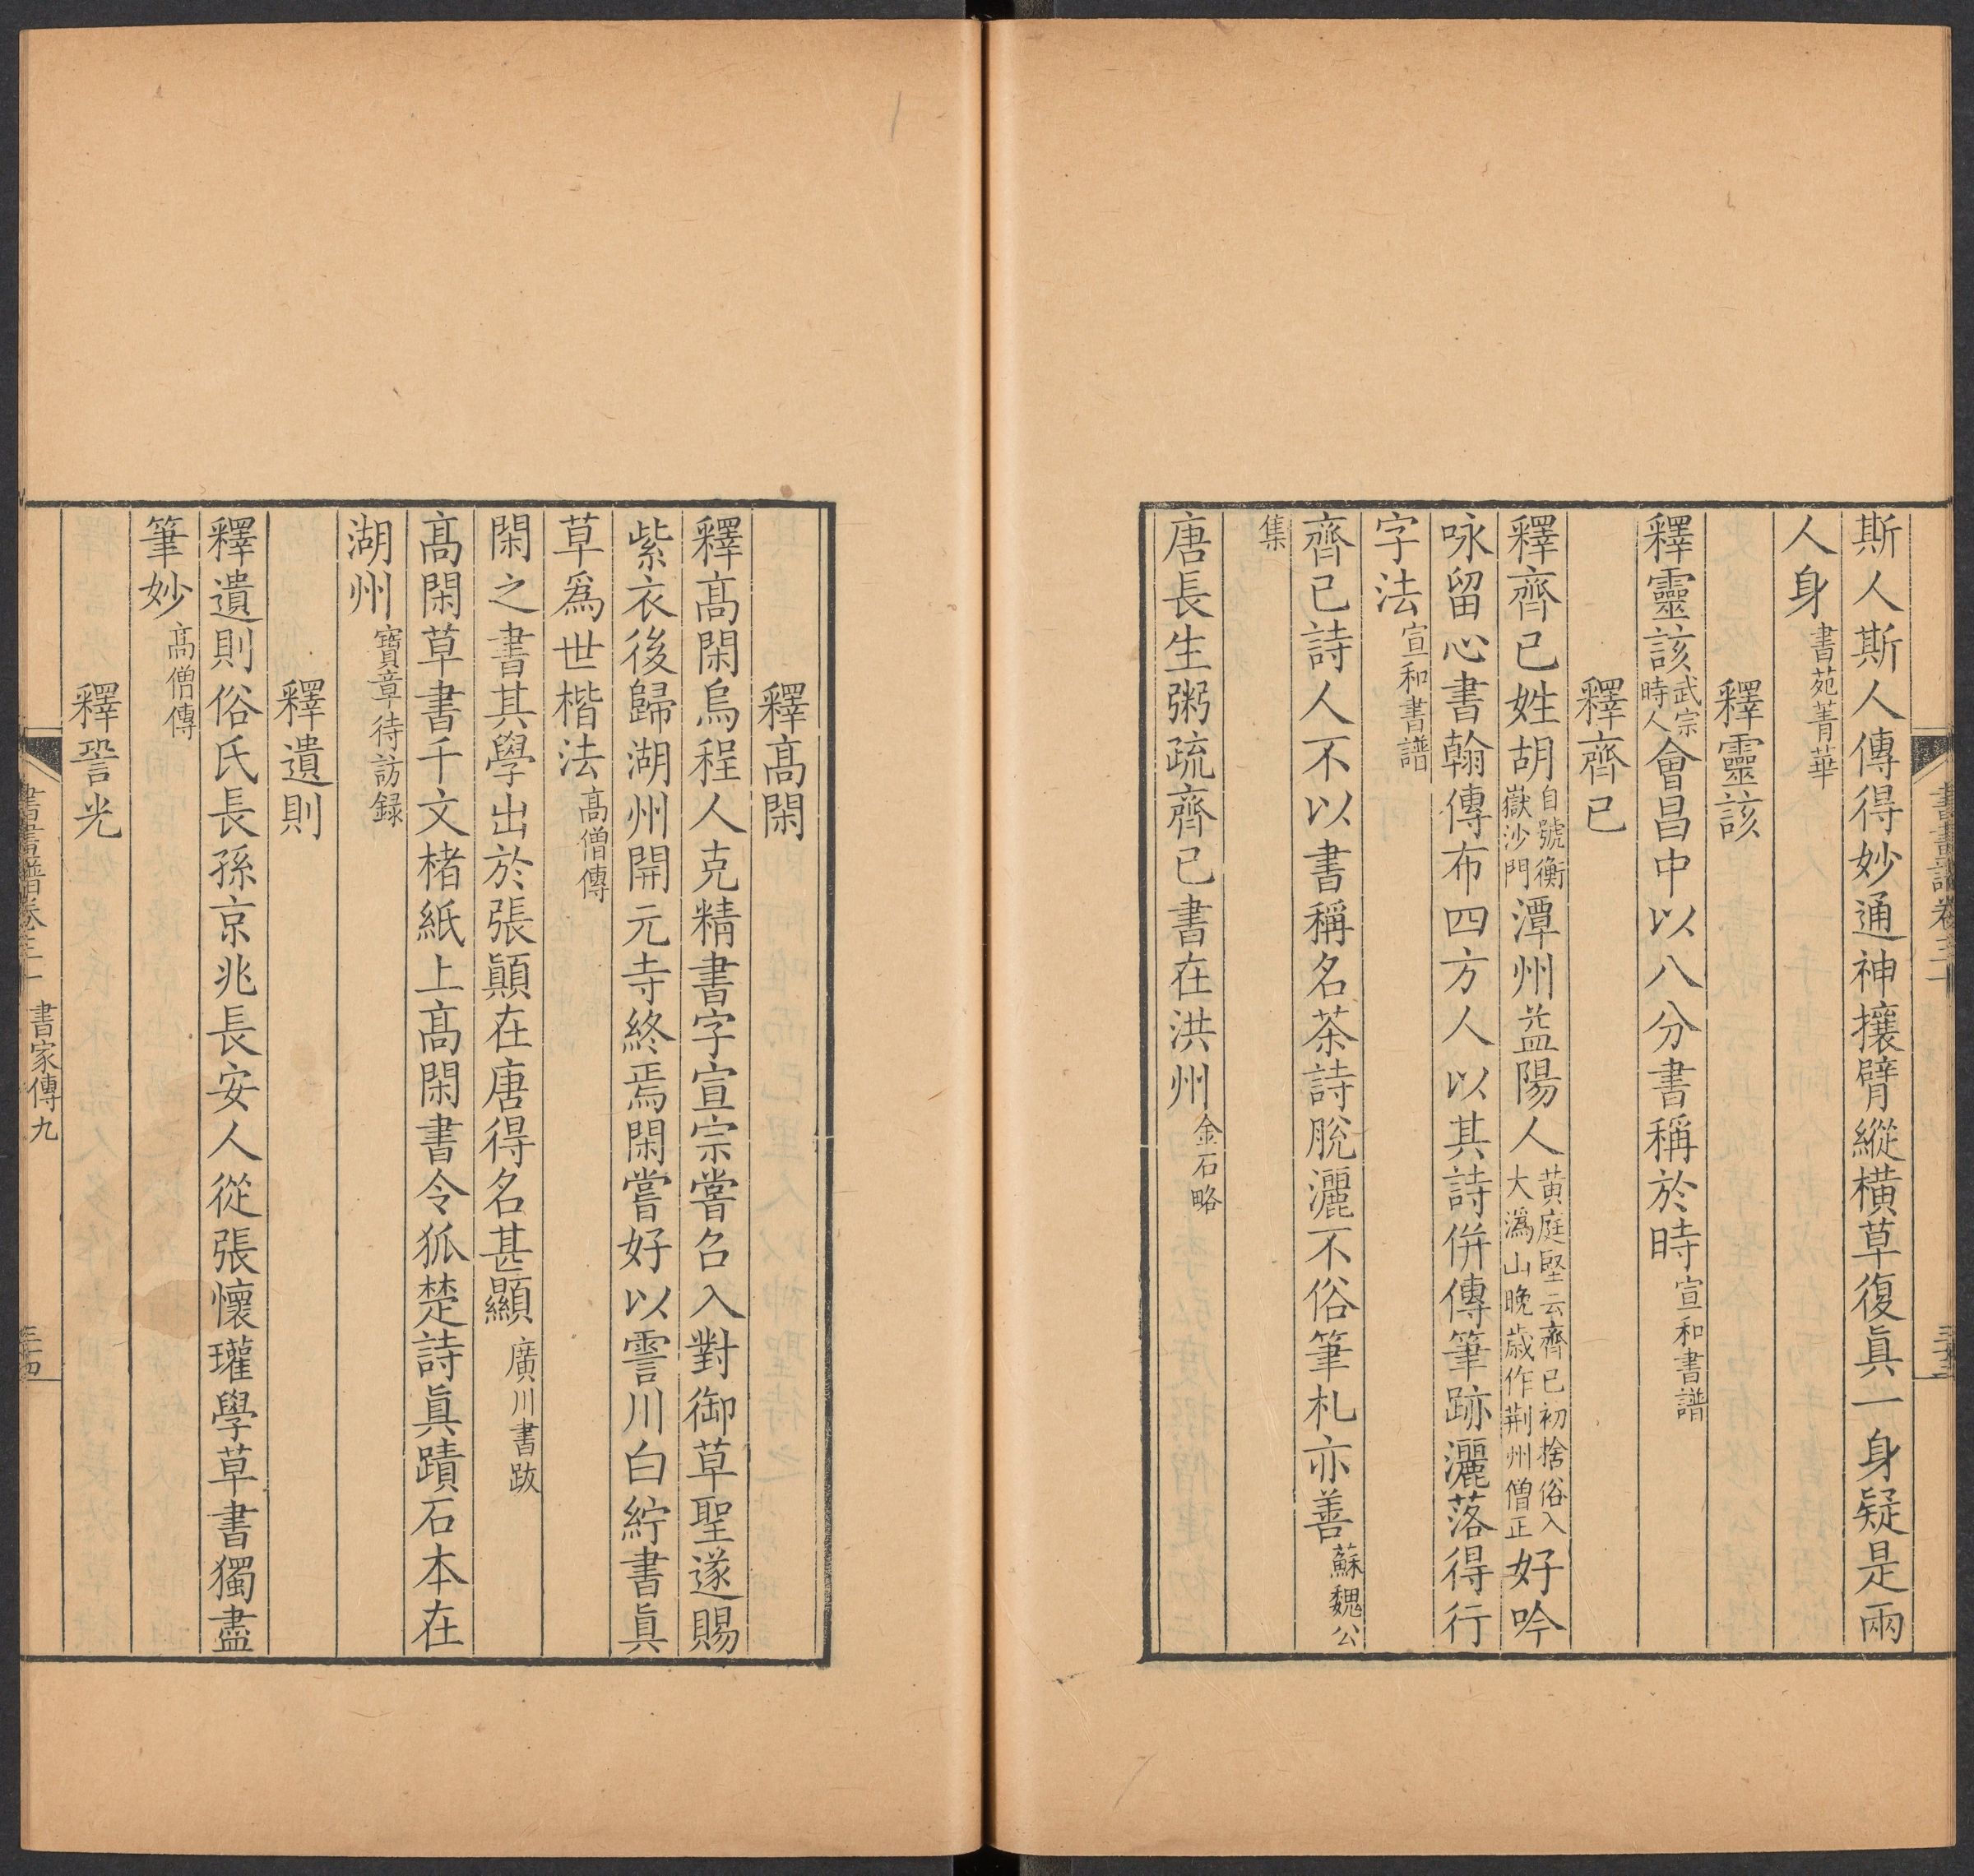 斯人斯人傳得妙通神攘臂縱橫草復眞一身疑是兩
人身書苑菁華
釋靈該
釋靈該武宗時人會昌中以八分書稱於時宣和書譜
釋齊已
釋齊已姓胡自號衡嶽沙門潭州益陽人黃庭堅云齊已初捨俗入大潙山晚歲作荆州僧正好吟
咏留心書翰傳布四方人以其詩併傳筆跡灑落得行
字法宣和書譜
齊已詩人不以書稱名茶詩脫灑不俗筆札亦善蘇魏公
集
唐長生粥疏齊已書在洪州金石略
釋高閑
釋高閑烏程人克精書字宣宗嘗召入對御草聖遂賜
紫衣後歸湖州開元寺終焉閑嘗好以霅川白紵書眞
草爲世楷法高僧傳
閑之書其學出於張顚在唐得名甚顯廣川書跋
高閑草書千文楮紙上高閑書令狐楚詩眞蹟石本在
湖州寶章待訪録
釋遺則
釋遺則俗氏長孫京兆長安人從張懷瓘學草書獨盡
筆妙高僧傳
釋䛒光
書畫譜卷三十 書家傳九